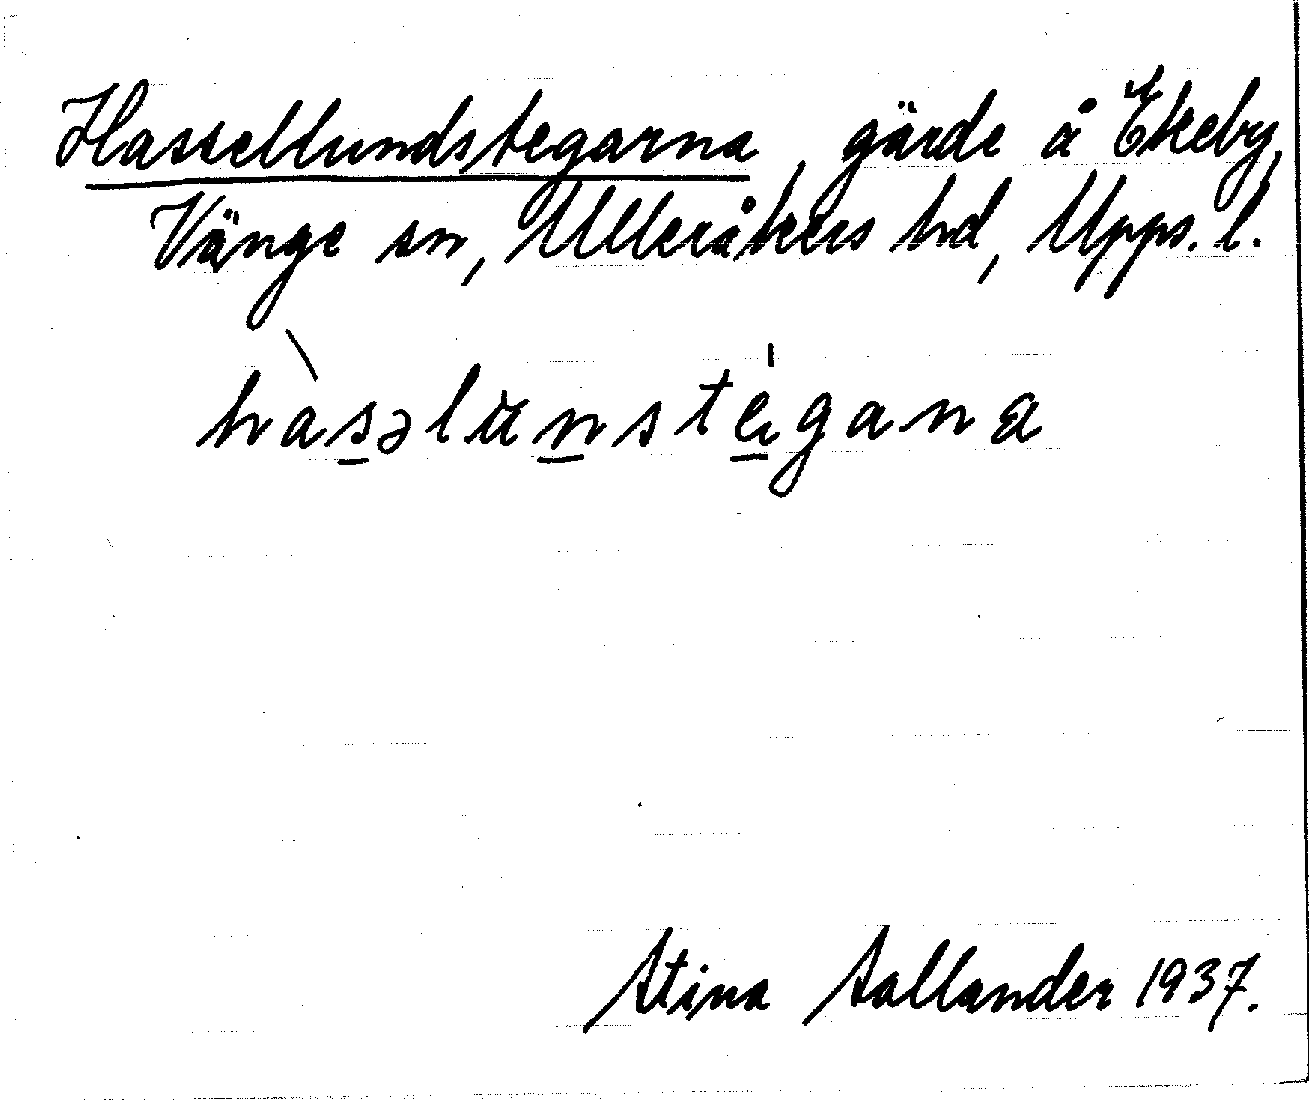 Hassellundstegarna, gärde å Ekeby,
Vänge sn, Ulleråkers hd, Upps. l.
hàsəlunstégana
Stina Sallander 1937.